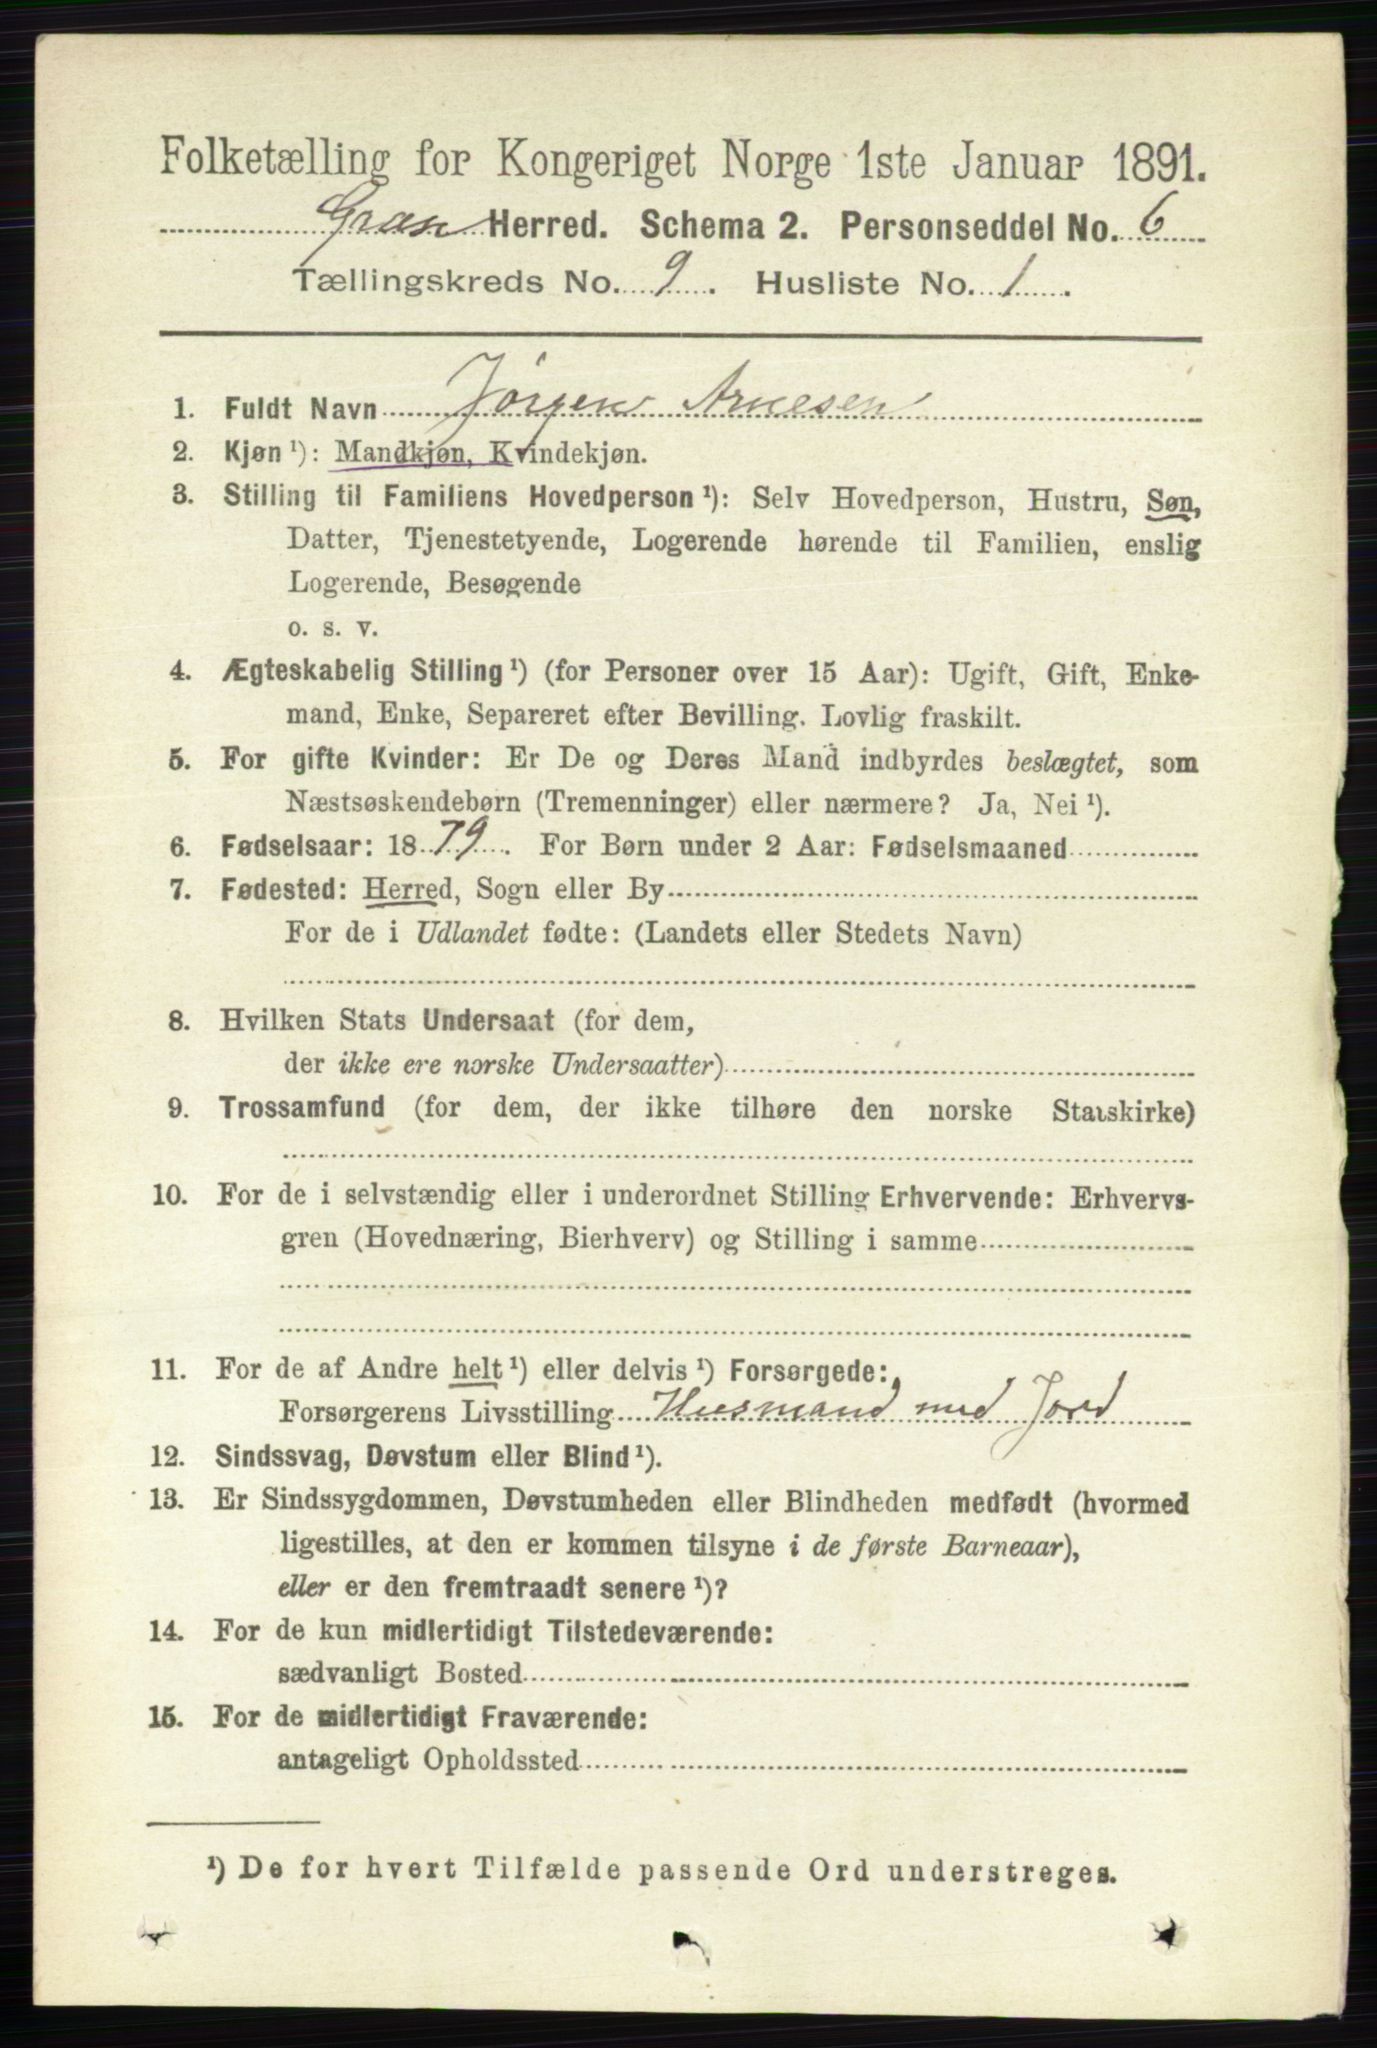 Folketælling for Kongeriget Norge 1ste Januar 1891.
Gran Herred. Schema 2. Personseddel No. 6
Tællingskreds No. 9. Husliste No. 1.
1. Fuldt Navn Jörgen Arnesen
2. Kjøn ¹): Mandkjøn, Kvindekjøn.
3. Stilling til Familiens Hovedperson ¹): Selv Hovedperson, Hustru, Søn,
Datter, Tjenestetyende, Logerende hørende til Familien, enslig
Logerende, Besøgende
o. s. v.
4. Ægteskabelig Stilling ¹) (for Personer over 15 Aar): Ugift, Gift, Enke-
mand, Enke, Separeret efter Bevilling. Lovlig fraskilt.
5. For gifte Kvinder: Er De og Deres Mand indbyrdes beslægtet, som
Næstsøskendebørn (Tremenninger) eller nærmere? Ja, Nei ¹).
6. Fødselsaar: 1879. For Børn under 2 Aar: Fødselsmaaned
7. Fødested: Herred, Sogn eller By
For de i Udlandet fødte: (Landets eller Stedets Navn)
8. Hvilken Stats Undersaat (for dem,
der ikke ere norske Undersaatter)
9. Trossamfund (for dem, der ikke tilhøre den norske Statskirke)
10. For de i selvstændig eller i underordnet Stilling Erhvervende: Erhvervs-
gren (Hovednæring, Bierhverv) og Stilling i samme
11. For de af Andre helt ¹) eller delvis ¹) Forsørgede:
Forsørgerens Livsstilling Husmand med Jord
12. Sindssvag, Døvstum eller Blind ¹).
13. Er Sindssygdommen, Døvstumheden eller Blindheden medfødt (hvormed
ligestilles, at den er kommen tilsyne i de første Barneaar),
eller er den fremtraadt senere ¹)?
14. For de kun midlertidigt Tilstedeværende:
sædvanligt Bosted
15. For de midlertidigt Fraværende:
antageligt Opholdssted
¹) De for hvert Tilfælde passende Ord understreges.